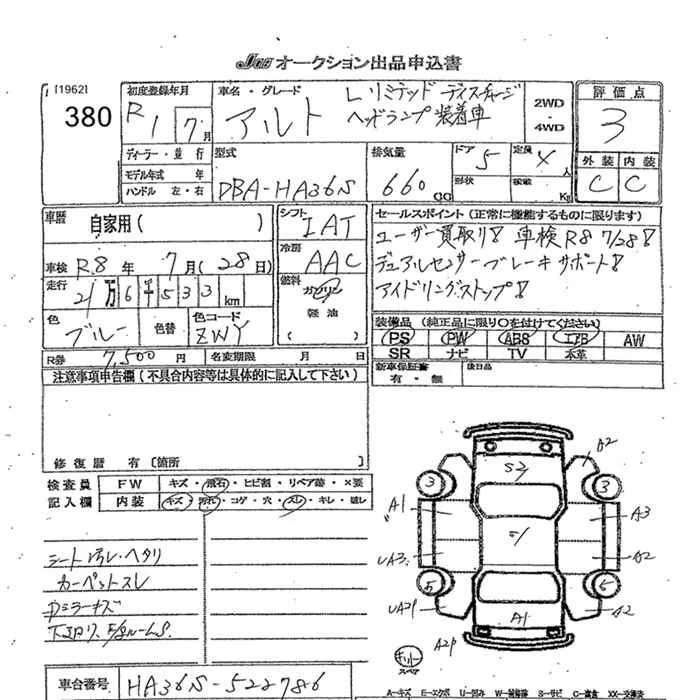 JU オークション出品申込書
[19962]
380
初度登録年月
R 1 7月
車名・グレード
アルト
Lリミテッド ディスチャージ
ヘッドランプ装着車
2WD
・
4WD
評価点
3
外装 内装
C C
ディーラー・並行
モデル年式 年
ハンドル 左・右
型式
DBA-HA36S
排気量
660 CC
ドア 5
形状
定員 4 人
積載 Kg
車歴
自家用( )
車検 R8 年 7 月 (28 日)
走行
2万6千533 km
色
ブルー
色替
色コード
ZWY
シフト
IAT
冷房
AAC
燃料
ガソリン
軽油
セールスポイント(正常に機能するものに限ります)
ユーザー買取り! 車検R8 7/28!
デュアルセンサーブレーキサポート!
アイドリングストップ!
装備品(純正品に限り○を付けてください)
PS PW ABS エアB AW
SR ナビ TV 本革
新車保証書
有・無
後日品
R券 7,500 円
名変期限 月 日
注意事項申告欄(不具合内容等は具体的に記入して下さい)
修復歴 有 〔箇所 〕
検査員
記入欄
FW
キズ・飛石・ヒビ割・リペア跡・×要
内装
キズ・汚れ・コゲ・穴・スレ・キレ・破レ
シート汚レ・ヘタリ
カーペットスレ
ミラーキズ
車台番号
HA36S-522786
S2
A2
3
3
A1
A3
UA3
A2
5
5
UA2
A2
A1
A2
スペア
A-キズ E-エクボ U-凹み W-補修跡 S-サビ C-腐食 XX-交換済